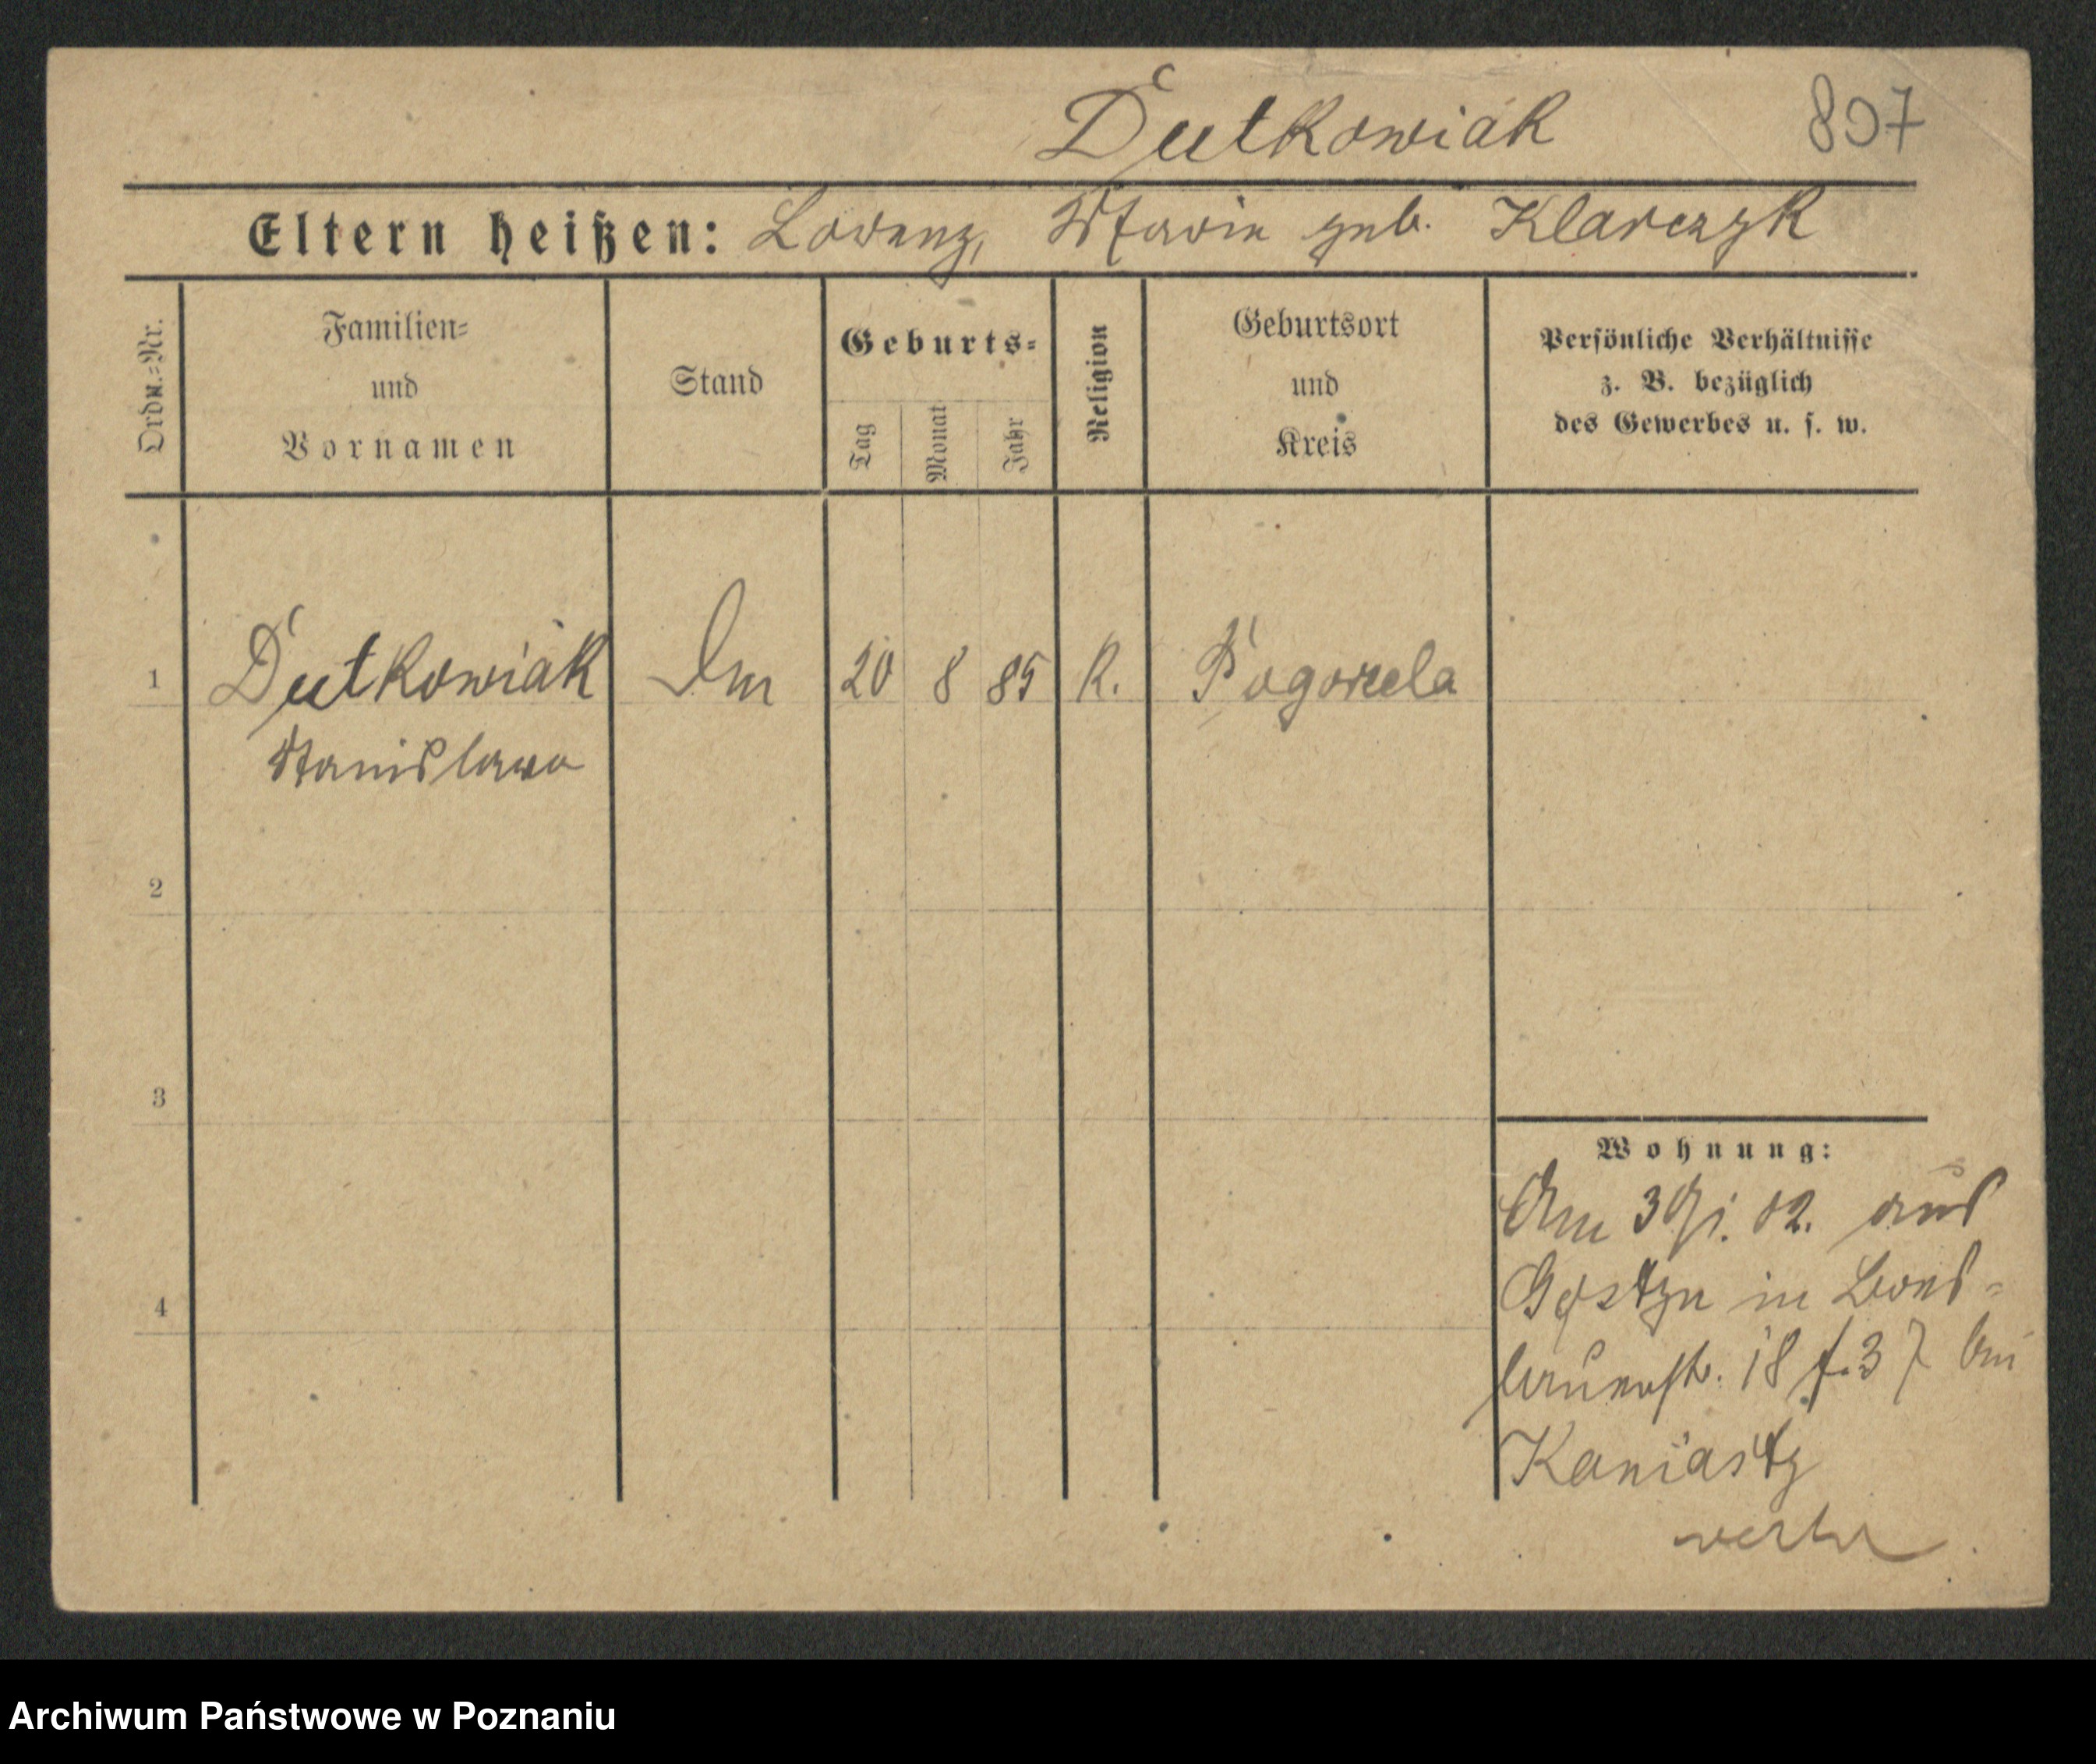 Dutkowiak 807
Eltern heißen: Lorenz, Marie geb. Klarczyk
Ordn.=Nr.
Familien=
und
Vornamen
Stand
Geburts=
Tag
Monat
Jahr
Religion
Geburtsort
und
Kreis
Persönliche Verhältnisse
z. B. bezüglich
des Gewerbes u. s. w.
1 Dutkowiak 20 8 85 K. Pogorzela
Stanislawa
2
3
4
Wohnung:
Am 3 02. aus
Gostyn in
18 37 bei
Archiwum Państwowe w Poznaniu